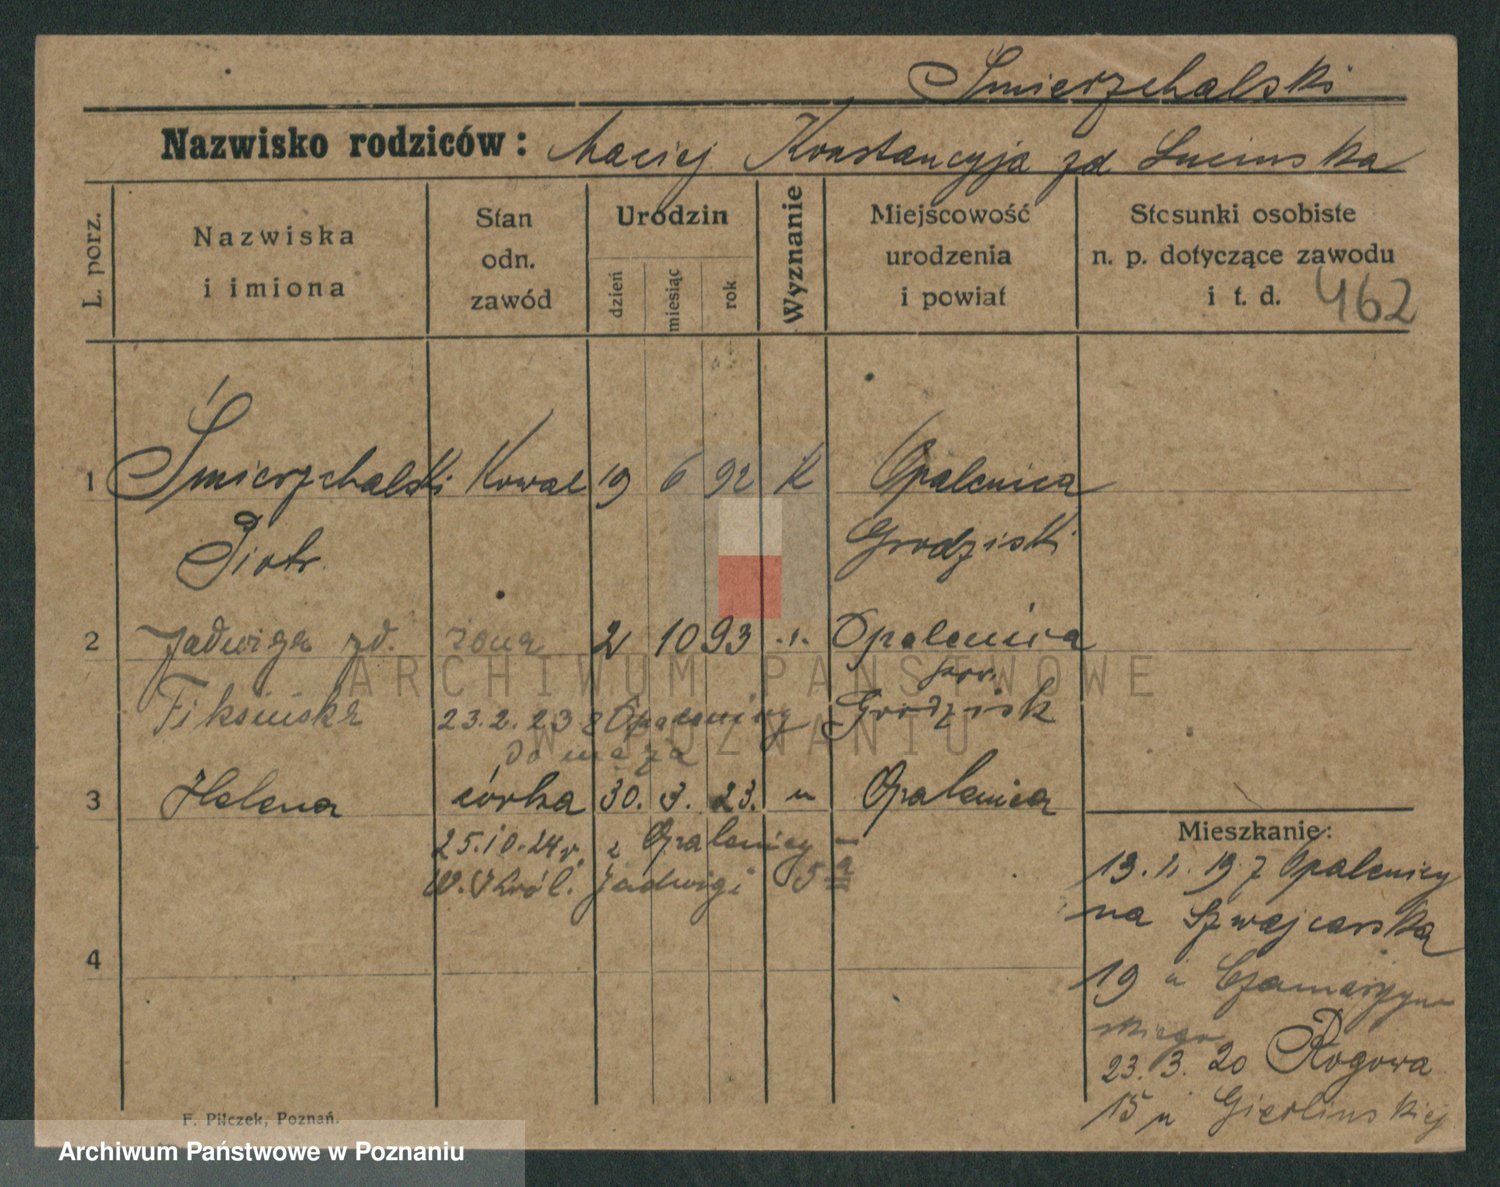 Śmierzchalski
Nazwisko rodziców: Maciej Konstancyja zd Sucinska
L. porz.
Nazwiska
i imiona
Stan
odn.
zawód
Urodzin
dzień
miesiąc
rok
Wyznanie
Miejscowość
urodzenia
i powiat
Stosunki osobiste
n. p. dotyczące zawodu
i t. d. 462
1 Śmierzchalski Kowal 19 6 92 K Opalenica
Piotr Grodziski
2 Jadwiga zd. żona 2 10 93 Opalenica
pow.
Fiksińska 23.2.23 z Opalenicy Grodzisk
do męża
3 Helena córka 30. 3. 23. " Opalenica
25.10.24r. z Opalenicy
W. Król. Jadwigi 5
4
Mieszkanie:
13. 11. 19 z Opalenicy
na Szwajcarska
19 u
23. 3. 20 Rogowa
15 u
F. Pilczek, Poznań.
ARCHIWUM PAŃSTWOWE
W POZNANIU
Archiwum Państwowe w Poznaniu